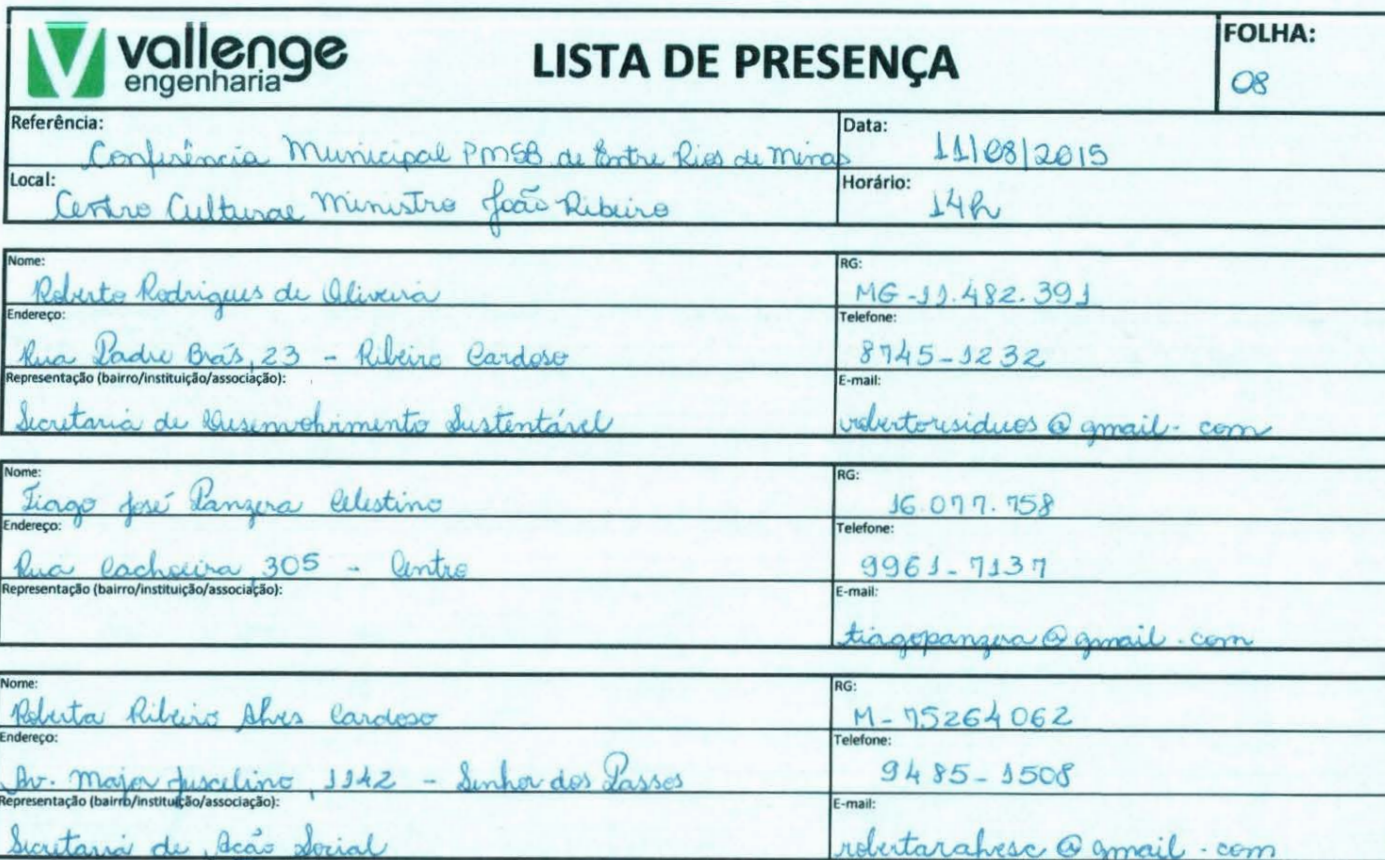 vallenge
engenharia
LISTA DE PRESENÇA
FOLHA:
08
Referência:
Conferência Municipal PMSB de Entre Rios de Minas
Data:
11/08/2015
Local:
Centro Cultural Ministro João Ribeiro
Horário:
14h
Nome:
Roberto Rodrigues de Oliveira
RG:
MG-11.482.391
Endereço:
Rua Padre Brás, 23 - Ribeiro Cardoso
Telefone:
8745-1232
Representação (bairro/instituição/associação):
Secretaria de Desenvolvimento Sustentável
E-mail:
robertoresiduos@gmail.com
Nome:
Tiago José Panzera Celestino
RG:
16.077.758
Endereço:
Rua Cachoeira 305 - Centro
Telefone:
9961-7137
Representação (bairro/instituição/associação):
E-mail:
tiagopanzera@gmail.com
Nome:
Roberta Ribeiro Alves Cardoso
RG:
M-75264062
Endereço:
Av. Major Juscelino, 1142 - Senhor dos Passos
Telefone:
9485-1508
Representação (bairro/instituição/associação):
Secretaria de Ação Social
E-mail:
robertaralvesc@gmail.com